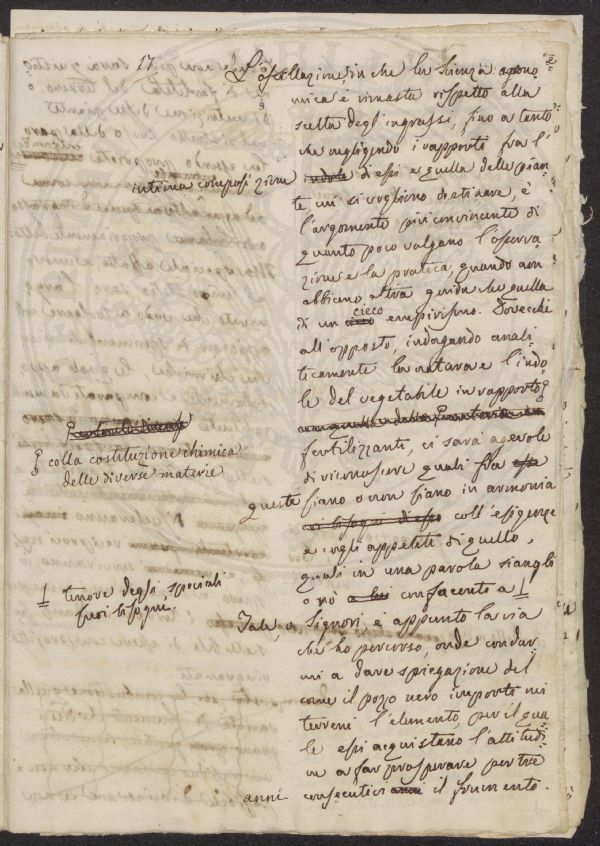 17
L'oscillazione in che la scienza agrono
mica è rimasta rispetto alla
scelta degl'ingrassi, fino a tanto
che negligendo i rapporti fra l'
intima composizione indole di essi e quella delle pian=
te cui si vogliono destinare, è
l'argomento più convincente di
quanto poco valgano l'osserva
zione e la pratica, quando non
abbiano altra guida che quella
di un cieco empirismo. Dovecchè
all'opposto, indagando anali=
ticamente la natura e l'indo=
le del vegetabile in rapporto
colla costituzione chimica
delle diverse materie
fertilizzanti, ci sarà agevole
di riconoscere quali fra esse
queste siano o non siano in armonia
coi bisogni di esso coll'esigenze
e cogli appetiti di quello,
quali in una parola siangli
o nò confacenti a
tenore degli speciali
suoi bisogni.
Tale, o Signori, è appunto la via
che ho percorso, onde condur=
mi a dare spiegazione del
come il pozzo nero importi nei
terreni l'elemento, per il qua=
le essi acquistano l'attitudi=
ne a far prosperare per tre
anni consecutivi anni il frumento.